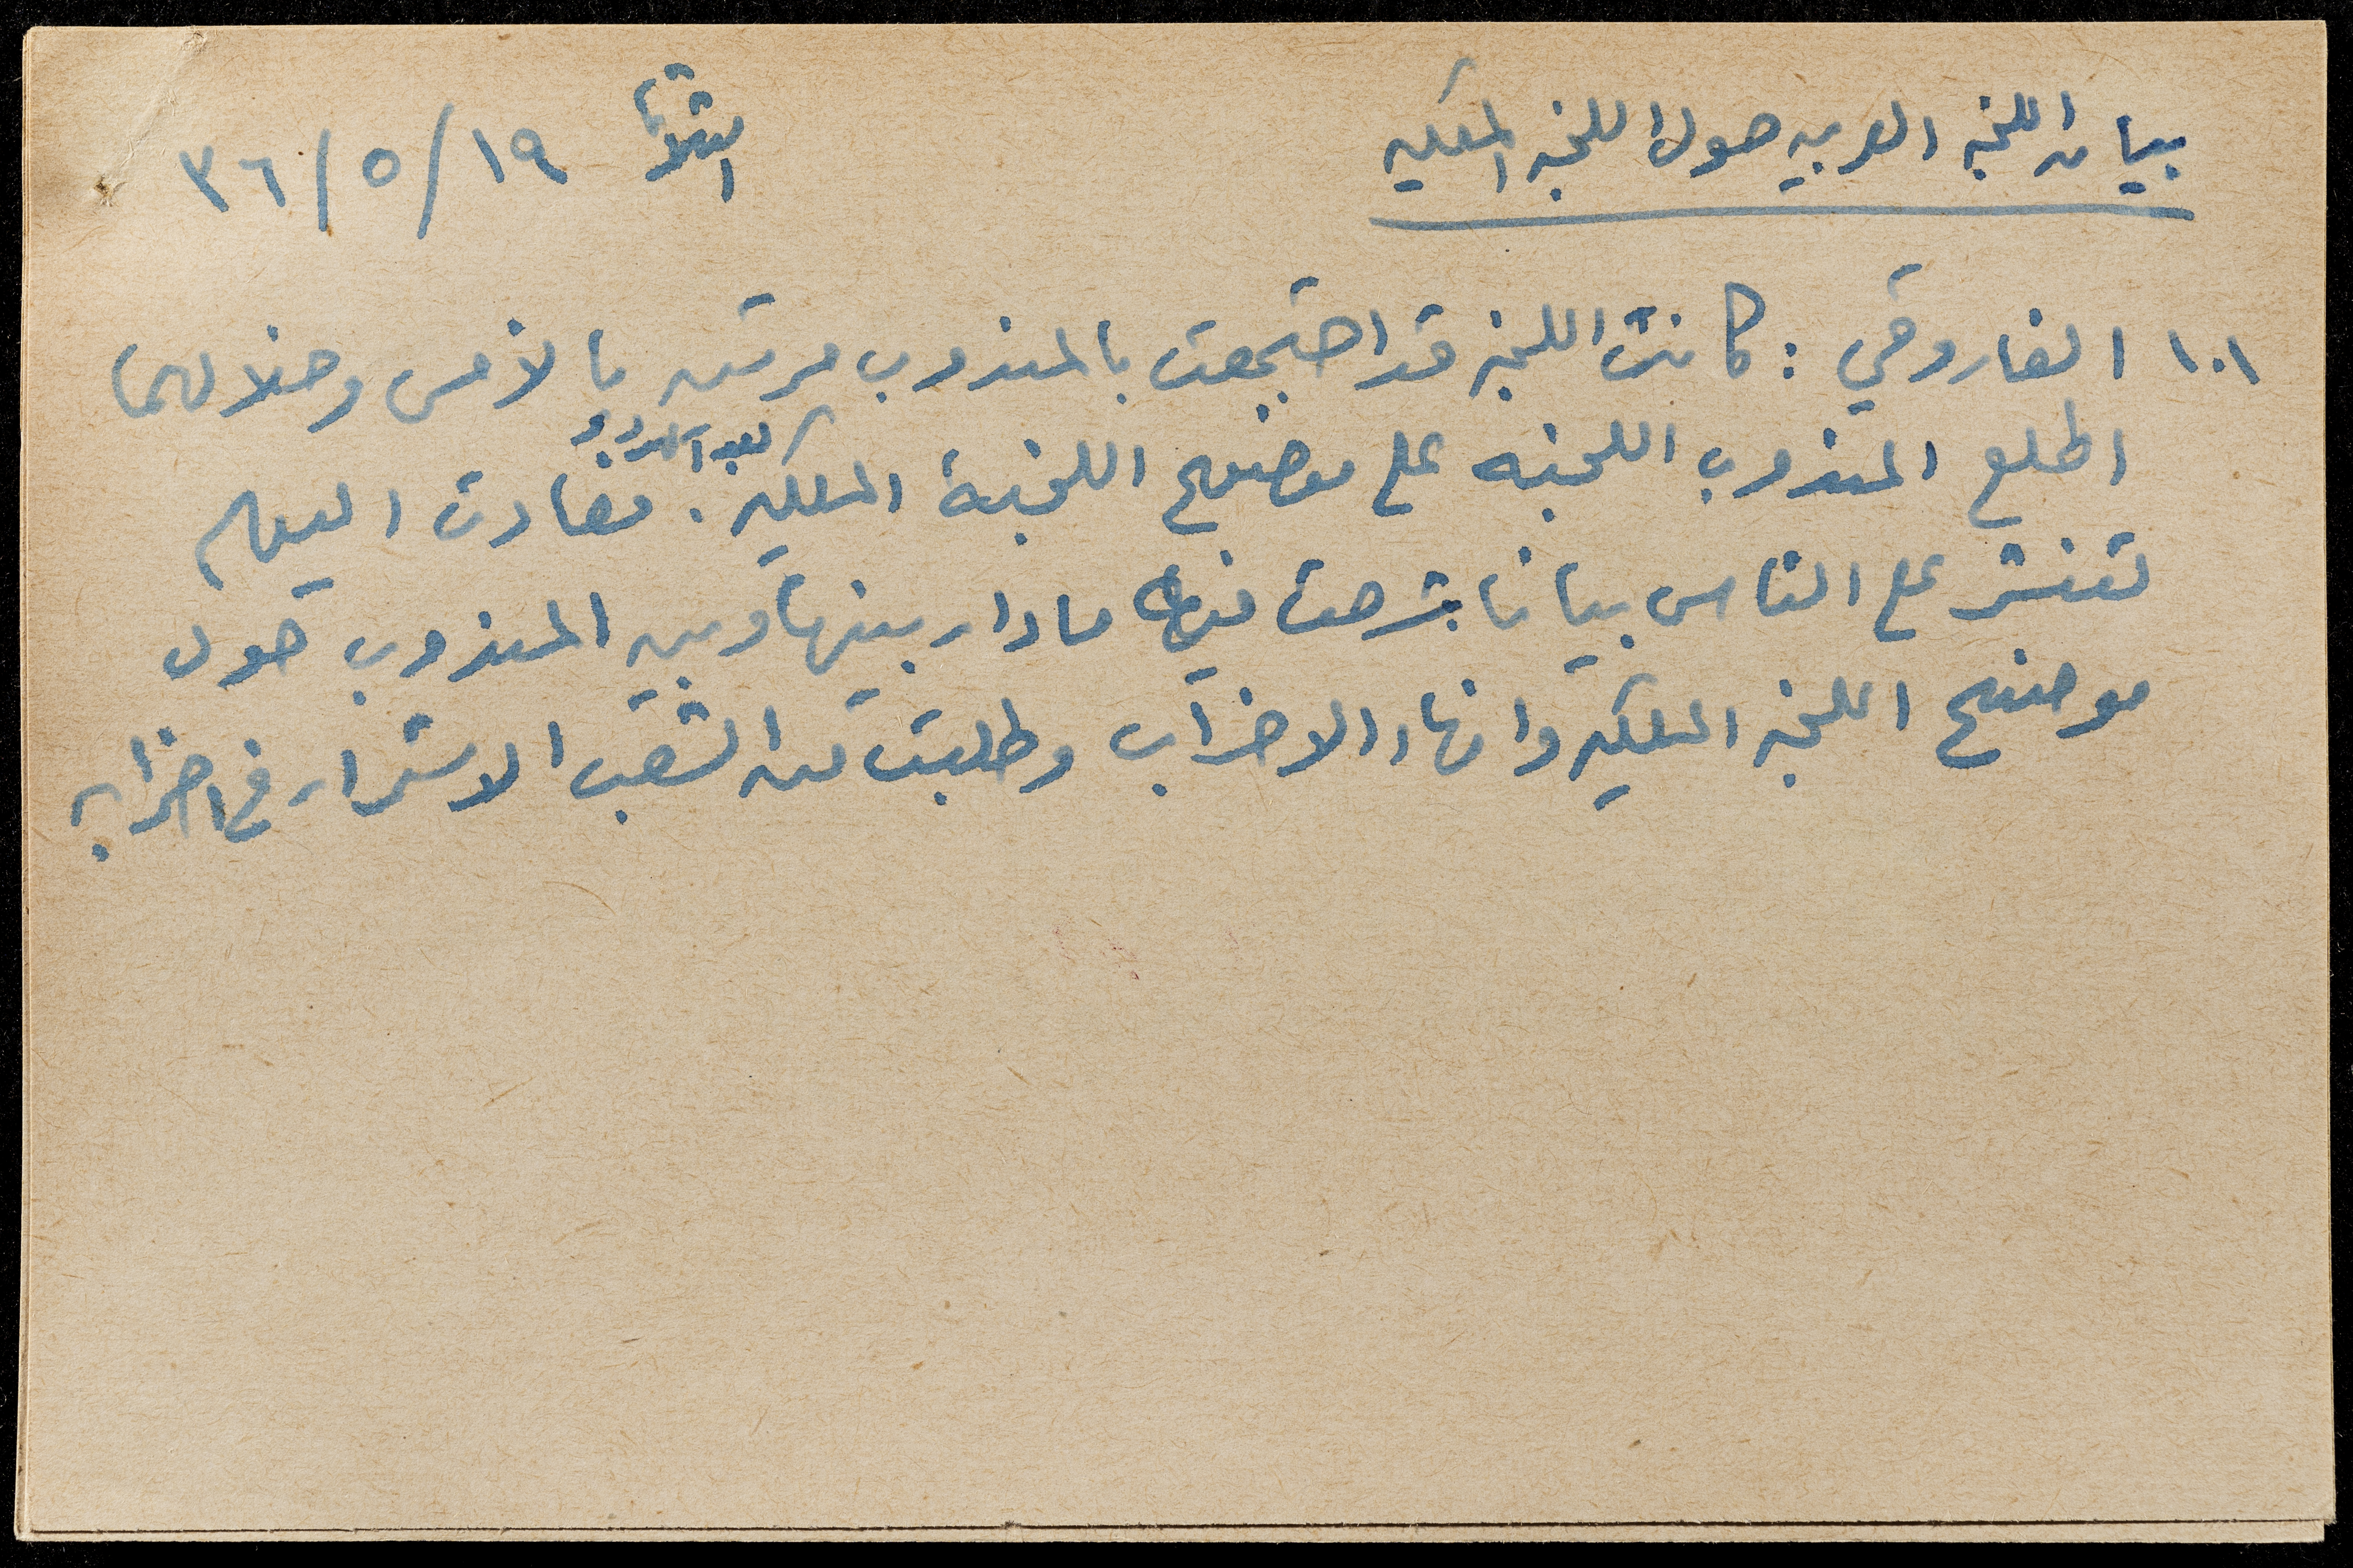 بيان اللجنه العربيه حول اللجنه الملكيه
الثلاثا ١٩/٥/٣٦
١٠١ الفاروقي : كانت اللجنه قد اجتمعت بالمندوب مرتين بالأمس وخلالهما
اطلع المندوب اللجنه على موضوع اللجنة الملكيه . فعادت اليوم
لتنشر على الناس بيانا شرحت فيه ما دار بينها وبين المندوب حول
موضوع اللجنه الملكيه وانهاء الاضراب وطلبت من الشعب الاستمرار في اضرابه